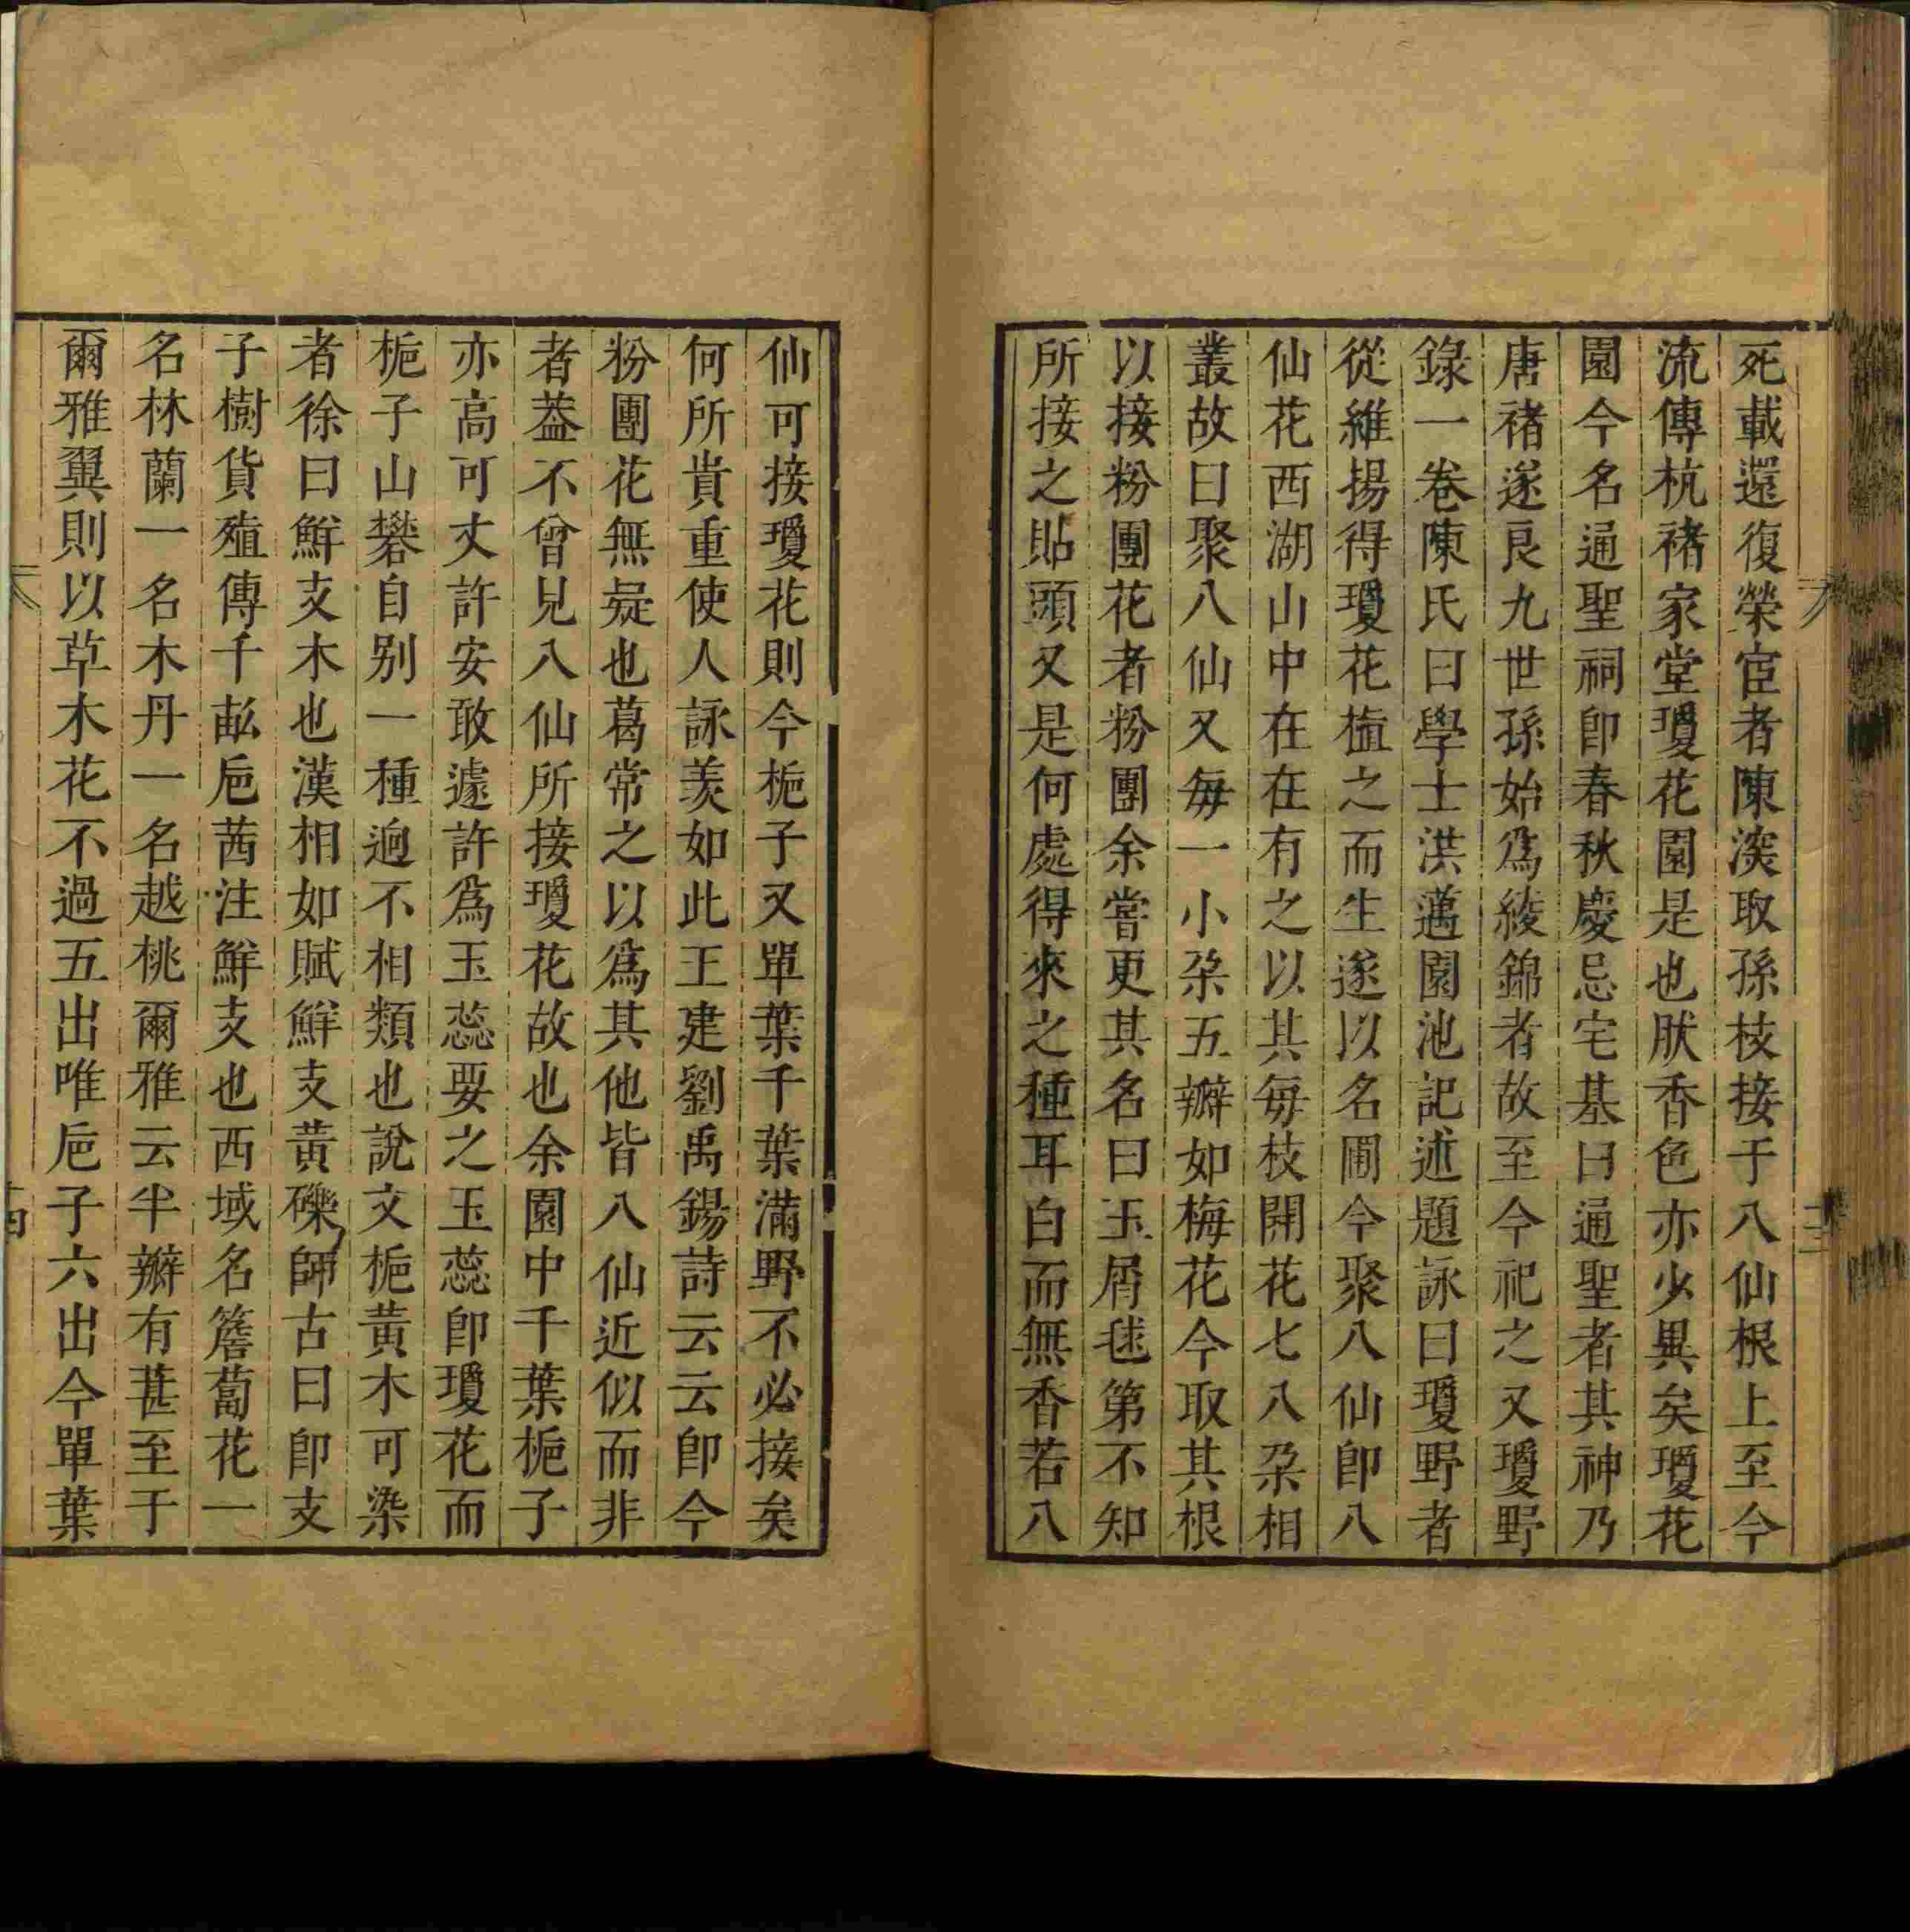 死載還復榮宦者陳源取孫枝接于八仙根上至今
流傳杭褚家堂瓊花園是也肰香色亦少異矣瓊花
園今名通聖祠即春秋慶忌宅基曰通聖者其神乃
唐褚遂良九世孫始爲綾錦者故至今祀之又瓊野
錄一卷陳氏曰學士洪邁園池記述題詠曰瓊野者
從維揚得瓊花植之而生遂以名圃今聚八仙即八
仙花西湖山中在在有之以其每枝開花七八朶相
叢故曰聚八仙又每一小朶五瓣如梅花今取其根
以接粉團花者粉團余嘗更其名曰玉屑毬第不知
所接之貼頭又是何處得來之種耳白而無香若八
仙可接瓊花則今梔子又單葉千葉滿野不必接矣
何所貴重使人詠羨如此王建劉禹錫詩云云即今
粉團花無疑也葛常之以爲其他皆八仙近似而非
者葢不曾見八仙所接瓊花故也余園中千葉梔子
亦高可丈許安敢遽許爲玉蕊要之玉蕊即瓊花而
梔子山礬自别一種逈不相類也說文梔黃木可染
者徐曰鮮支木也漢相如賦鮮支黃礫師古曰即支
子樹貨殖傳千畝巵茜注鮮支也西域名簷蔔花一
名林蘭一名木丹一名越桃爾雅云半瓣有葚至于
爾雅翼則以草木花不過五出唯巵子六出今單葉